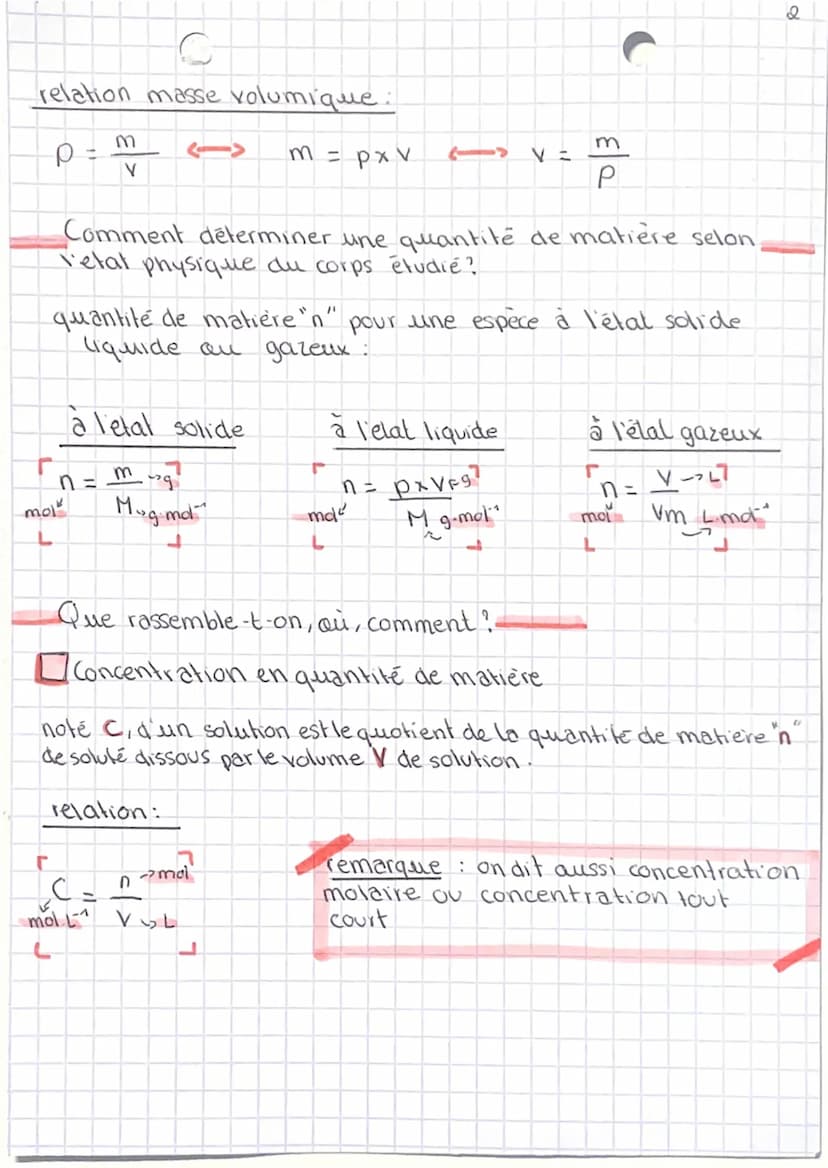 2
relation masse volumique :
ρ = m/V ⟷ m = ρ x V ⟷ V = m/ρ
Comment déterminer une quantité de matière selon
l'état physique du corps étudié ?
quantité de matière "n" pour une espèce à l'état solide
liquide ou gazeux :
à l'état solide à l'état liquide à l'état gazeux
n = m → g / M → g.mol⁻¹ n = ρ x V → g / M g.mol⁻¹ n = V → L / Vm L.mol⁻¹
mol mol mol
Que rassemble-t-on, où, comment ?
Concentration en quantité de matière
noté C, d'un solution est le quotient de la quantité de matière "n"
de soluté dissous par le volume V de solution.
relation :
C = n → mol / V → L
mol.L⁻¹
remarque : on dit aussi concentration
molaire ou concentration tout
court